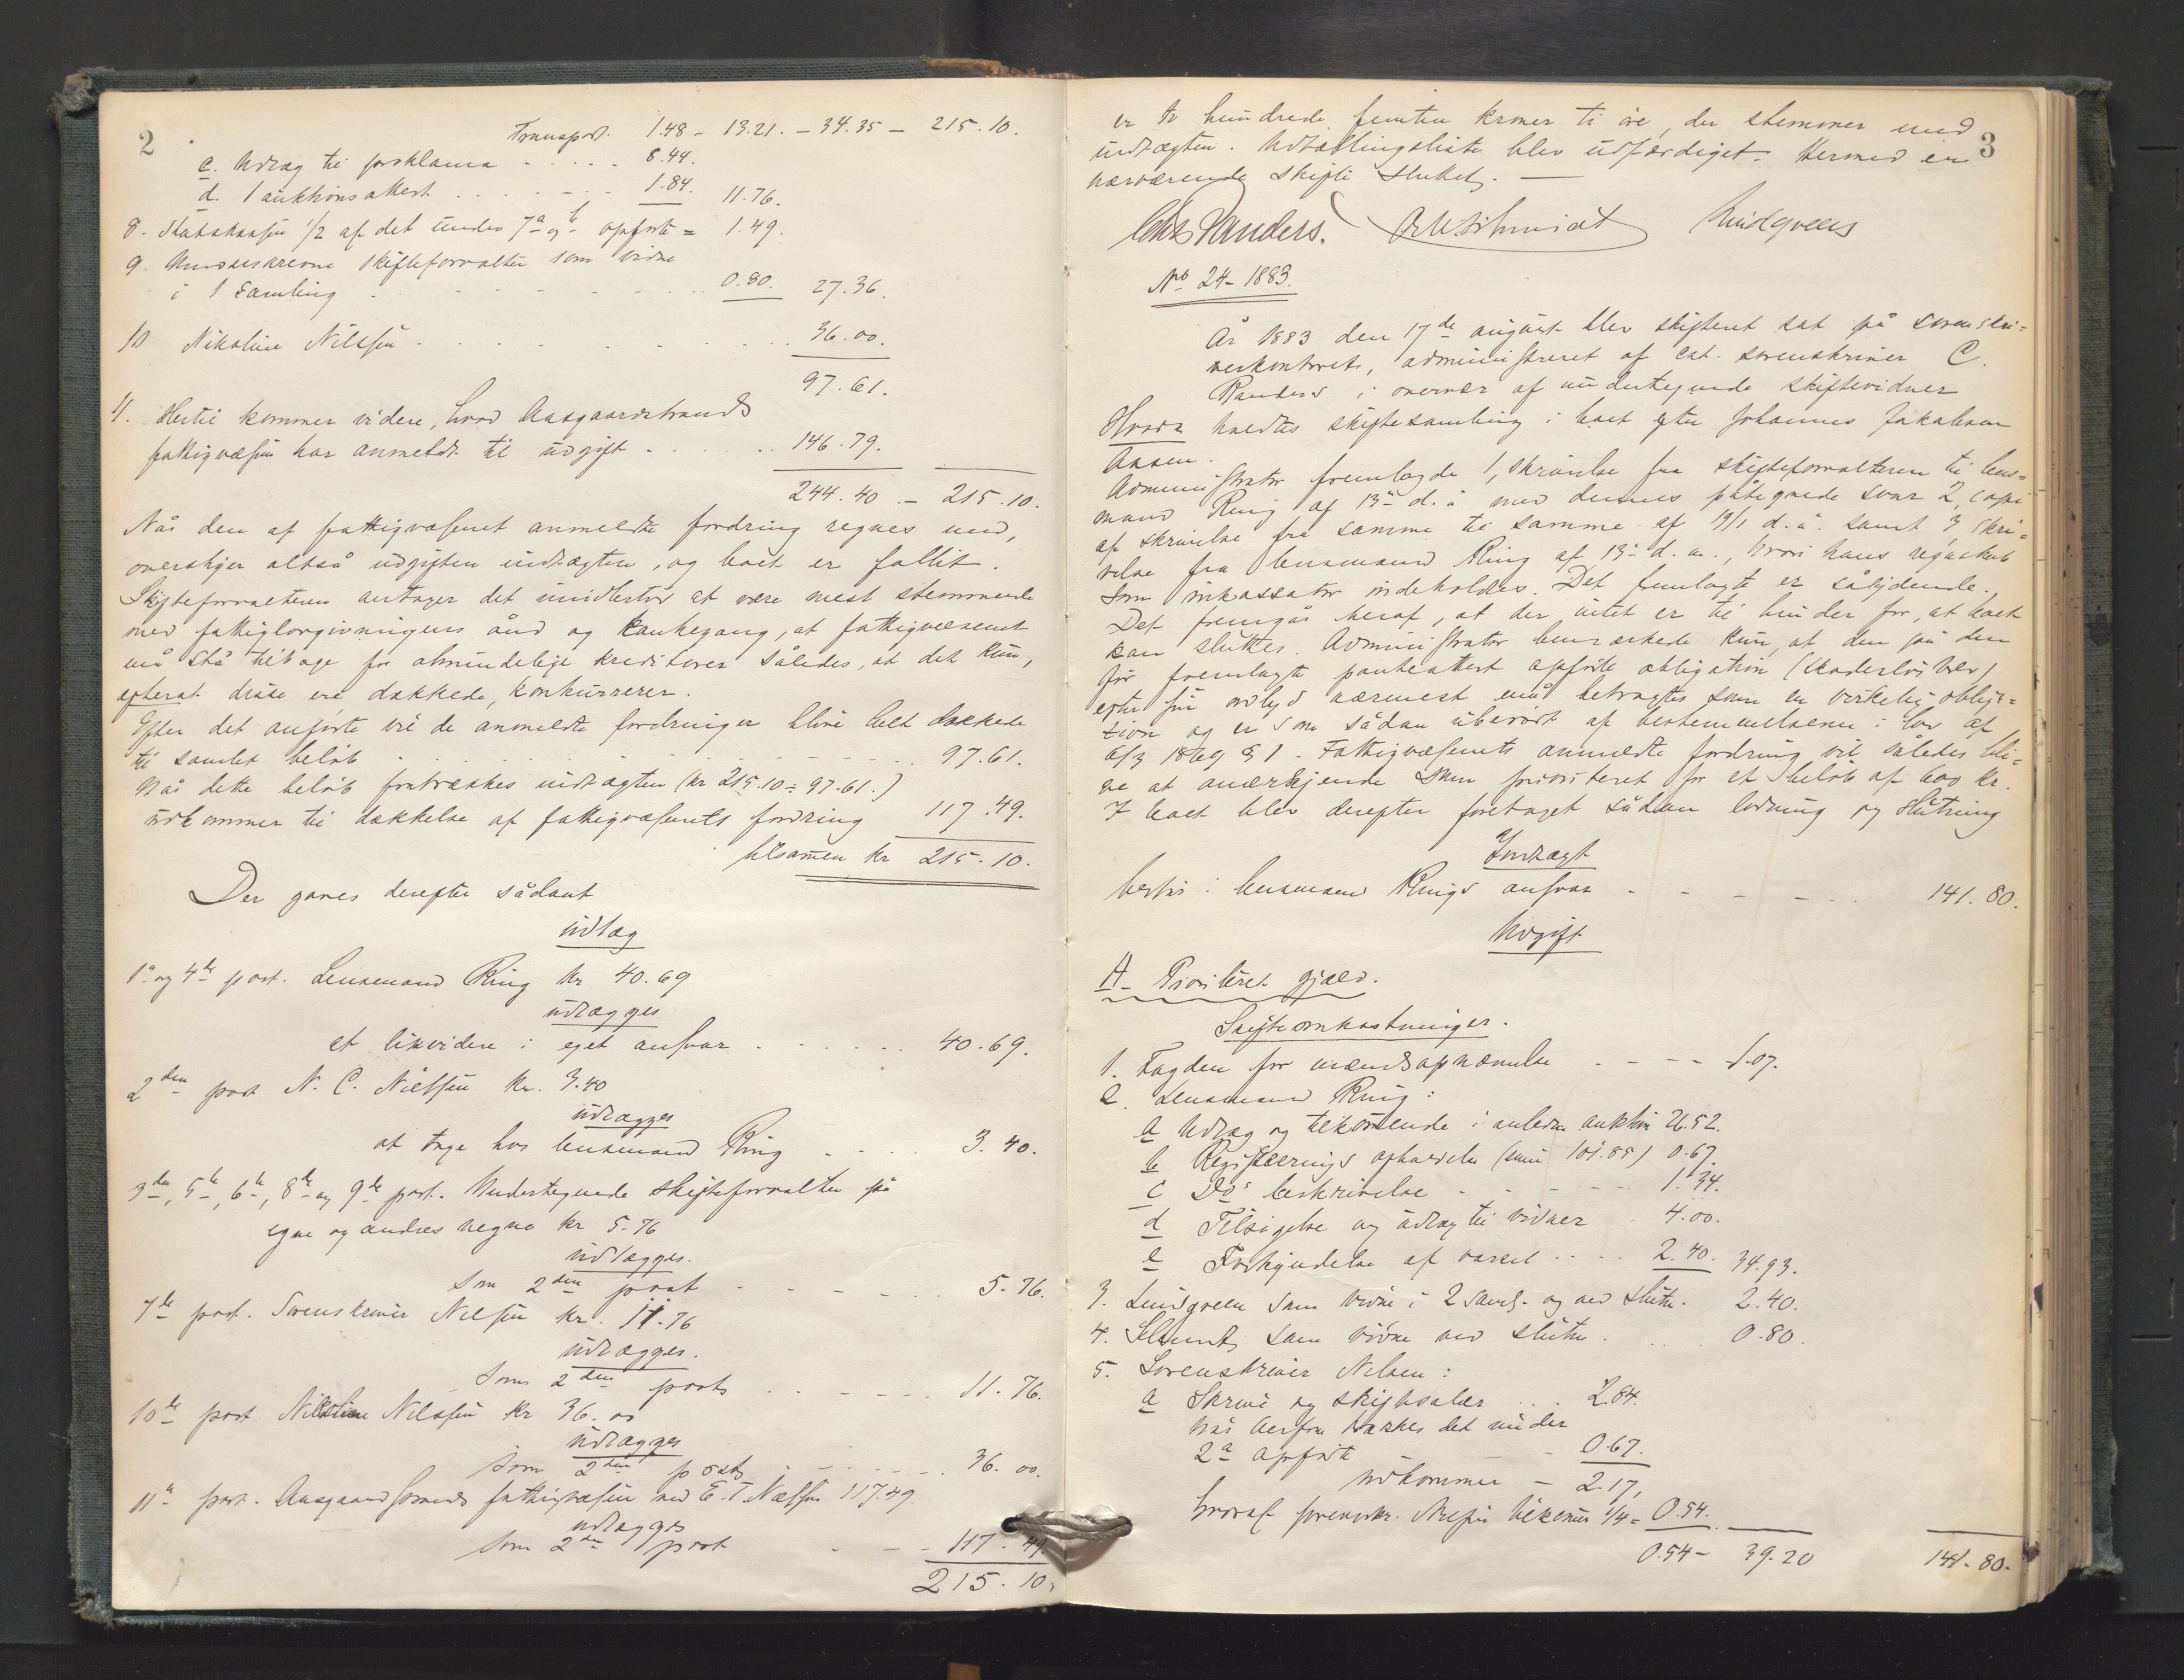 2
Transport. 1.48 - 13.21. - 34.35 - 215.10.
c. Udlæg til proklama 8.44.
d. 1 auktionsattest 1.84. 11.76.
8. Statskassen 1/2 af det under 7 a og b opførte = 1.49.
9. Undskrevne skifteforvalter som vidne
i 1 samling 0.80. 27.36.
10 Nikoline Nilssen 36.00.
97.61.
11. Hertil kommer videre, hvad Aasgaardstrands
fattigvæsen har anmeldt til udgift 146.79.
244.40. - 215.10.
Når den af fattigvæsenet anmeldte fordring regnes med,
overstiger altså udgiften indtægten, og boet er fallit.
Skifteforvalteren antager det imidlertid at være mest stemmende
med fattiglovgivningens ånd og tankegang, at fattigvæsenet
må stå tilbage for almindelige kreditorer således, at det kun,
efterat disse ere dækkede, konkurrerer.
Efter det anførte vil de anmeldte fordringer blive helt dækkede
til samlet beløb 97.61.
Når dette beløb fratrækkes indtægten (kr 215.10 ÷ 97.61.)
udkommer til dækkelse af fattigvæsenets fordring 117.49.
tilsamen kr 215.10.
Der gaves derefter sådant
udlæg
1ste og 4de post. Lensmand Ring kr 40.69
udlægges
at likvidere i eget ansvar 40.69.
2den post N. C. Nielssen kr. 3.40
udlægges
at tage hos lensmand Ring 3.40.
3die, 5te, 6te, 8de og 9de post. Undertegnede skifteforvalter på
egne og andres vegne kr 5.76
udlægges.
som 2den post 5.76.
7de post. Sorenskriver Nilssen kr. 11.76
udlægges.
som 2den posts 11.76.
10de post Nikoline Nilssen kr 36.00
udlægges
som 2den posts 36.00.
11te post. Aasgaardstrands fattigvæsen ved E. T. Nielssen 117.49.
udlægges
som 2den post 117.49.
215.10.
3
er to hundrede femten kroner ti øre, der stemmer med
indtægten. Udtællingsliste blev udfærdiget. Hermed er
nærværende skifte sluttet.
Chs Randers. Schmidt Lindgreen
No 24-1883.
År 1883 den 17de august blev skifteret sat på sorenskri-
verkontoret, administreret af cst. sorenskriver C.
Randers i overvær af undertegnede skiftevidner
Hvor da holdtes skiftesamling i boet efter Johannes Jakobsen
Aasen.
Administrator fremlagde 1, skrivelse fra skifteforvalteren til lens-
mand Ring af 13de d. å. med dennes påtegnede svar 2, copi
af skrivelse fra samme til samme af 19/1 d. å. samt 3 skri-
velse fra lensmand Ring af 13de d. m., hvori hans regnskab
som inkassator indeholdes. Det fremlagte er sålydende.
Det fremgår heraf, at der intet er til hinder for, at boet
kan sluttes. Administrator bemærkede kun, at den på den
før fremlagte panteattest opførte obligation (skadesløsbrev)
efter sin ordlyd nærmest må betragtes som en virkelig obliga-
tion og er som sådan uberørt af bestemmelserne i lov af
6/3 1869 § 1. Fattigvæsenets anmeldte fordring vil således bli-
ve at anerkjende som prioriteret for et beløb af 600 kr.
I boet blev derefter foretaget sådan lodning og slutning
Indtægt
består i lensmand Rings ansvar 141.80.
Udgift
A- Prioriteret gjæld.
Skifteomkostninger.
1. Fogden for mændsopnævnelse 1.07.
2. Lensmand Ring:
a Udlæg og tilkommende i anledn auktion 26.52.
b Registreringens afholdelse (sum 101.85) 0.67.
c Dos beskrivelse 1.34.
d Tilsigelse og udlæg til vidner 4.00.
e Forkyndelse af varsel 2.40. 34.93.
3. Lindgreen som vidne i 2 saml. og ved slutn. 2.40.
4. Schmidt som vidne ved slutn. 0.80.
5. Sorenskriver Nilsen:
a Skrive og skiftsalær 2.84.
når herfra trækkes det under
2a opførte 0.67.
udkommer - 2.17,
hvoraf sorenskr. Nilssen tilkommer 1/4 = 0.54.
0.54 - 39.20 141.80.